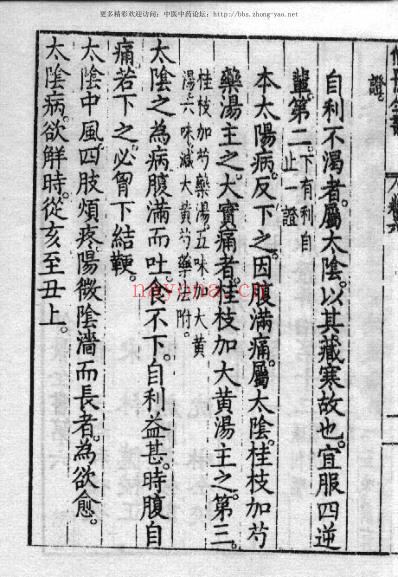 更多精彩欢迎访问：中医中药论坛：http://bbs.zhong-yao.net
證。
自利不渴者。屬太陰。以其藏寒故也。宜服四逆
輩。第二。下有利自
止一證
本太陽病。反下之。因腹滿痛。屬太陰。桂枝加芍
藥湯主之。大實痛者。桂枝加大黃湯主之。第三。
桂枝加芍藥湯。五味加大黃
湯。六味。減大黃芍藥法附。
太陰之為病。腹滿而吐。食不下。自利益甚。時腹自
痛。若下之。必胷下結鞕。
太陰中風。四肢煩疼。陽微陰濇而長者。為欲愈。
太陰病。欲解時。從亥至丑上。
nayona.cn